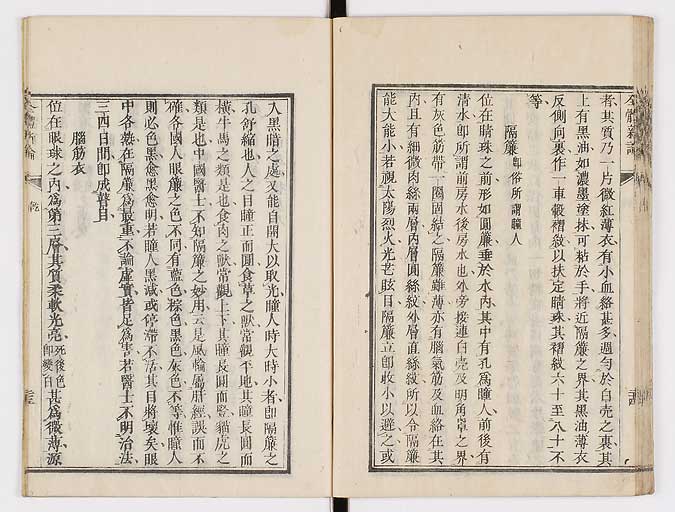 全體新論
者、其質乃一片微紅薄衣、有小血絡甚多、週勻於白壳之裏、其
上有黑油如濃墨塗抹、可粘於手、將近隔簾之界、其黑油薄衣
反側向裏、作一車轂褶紋、以扶定睛珠、其褶紋六十至八十不
等、
隔簾 即俗所謂瞳人
位在睛珠之前、形如圓簾、垂於水內、其中有孔為瞳人、前後有
清水、即所謂前房水後房水也、外旁接連白壳、及明角罩之界、
有灰色筋帶一圈固結之、隔簾雖薄、亦有腦氣筋及血絡在其
內、且有細微肉絲兩層、內層圓絲紋、外層直絲紋、所以令隔簾
能大能小、若視太陽烈火、光芒眩目、隔簾立即收小以避之、或
入黑暗之處、又能自開大以取光、瞳人時大時小者、即隔簾之
孔舒縮也、人之目瞳正而圓、食草之獸、常觀平地、其瞳長圓而
橫、牛馬之類是也、食肉之獸、常觀上下、其瞳長圓而豎、貓虎之
類是也、中國醫士不知隔簾之妙用、云是風輪屬肝經、誤而不
確、各國人眼簾之色不同、有藍色、棕色、黑色、灰色不等、惟瞳人
則必色黑、愈黑愈明、若瞳人黑減、或停滯不活、其目將壞矣、眼
中各熱在隔簾為最重、不論虛實、皆足為害、若醫士不明治法、
三四日間、即成瞽目、
腦筋衣
位在眼珠之內、為第三層、其質柔軟光亮、死後色即變白 其為微薄、源
全體新論
乾